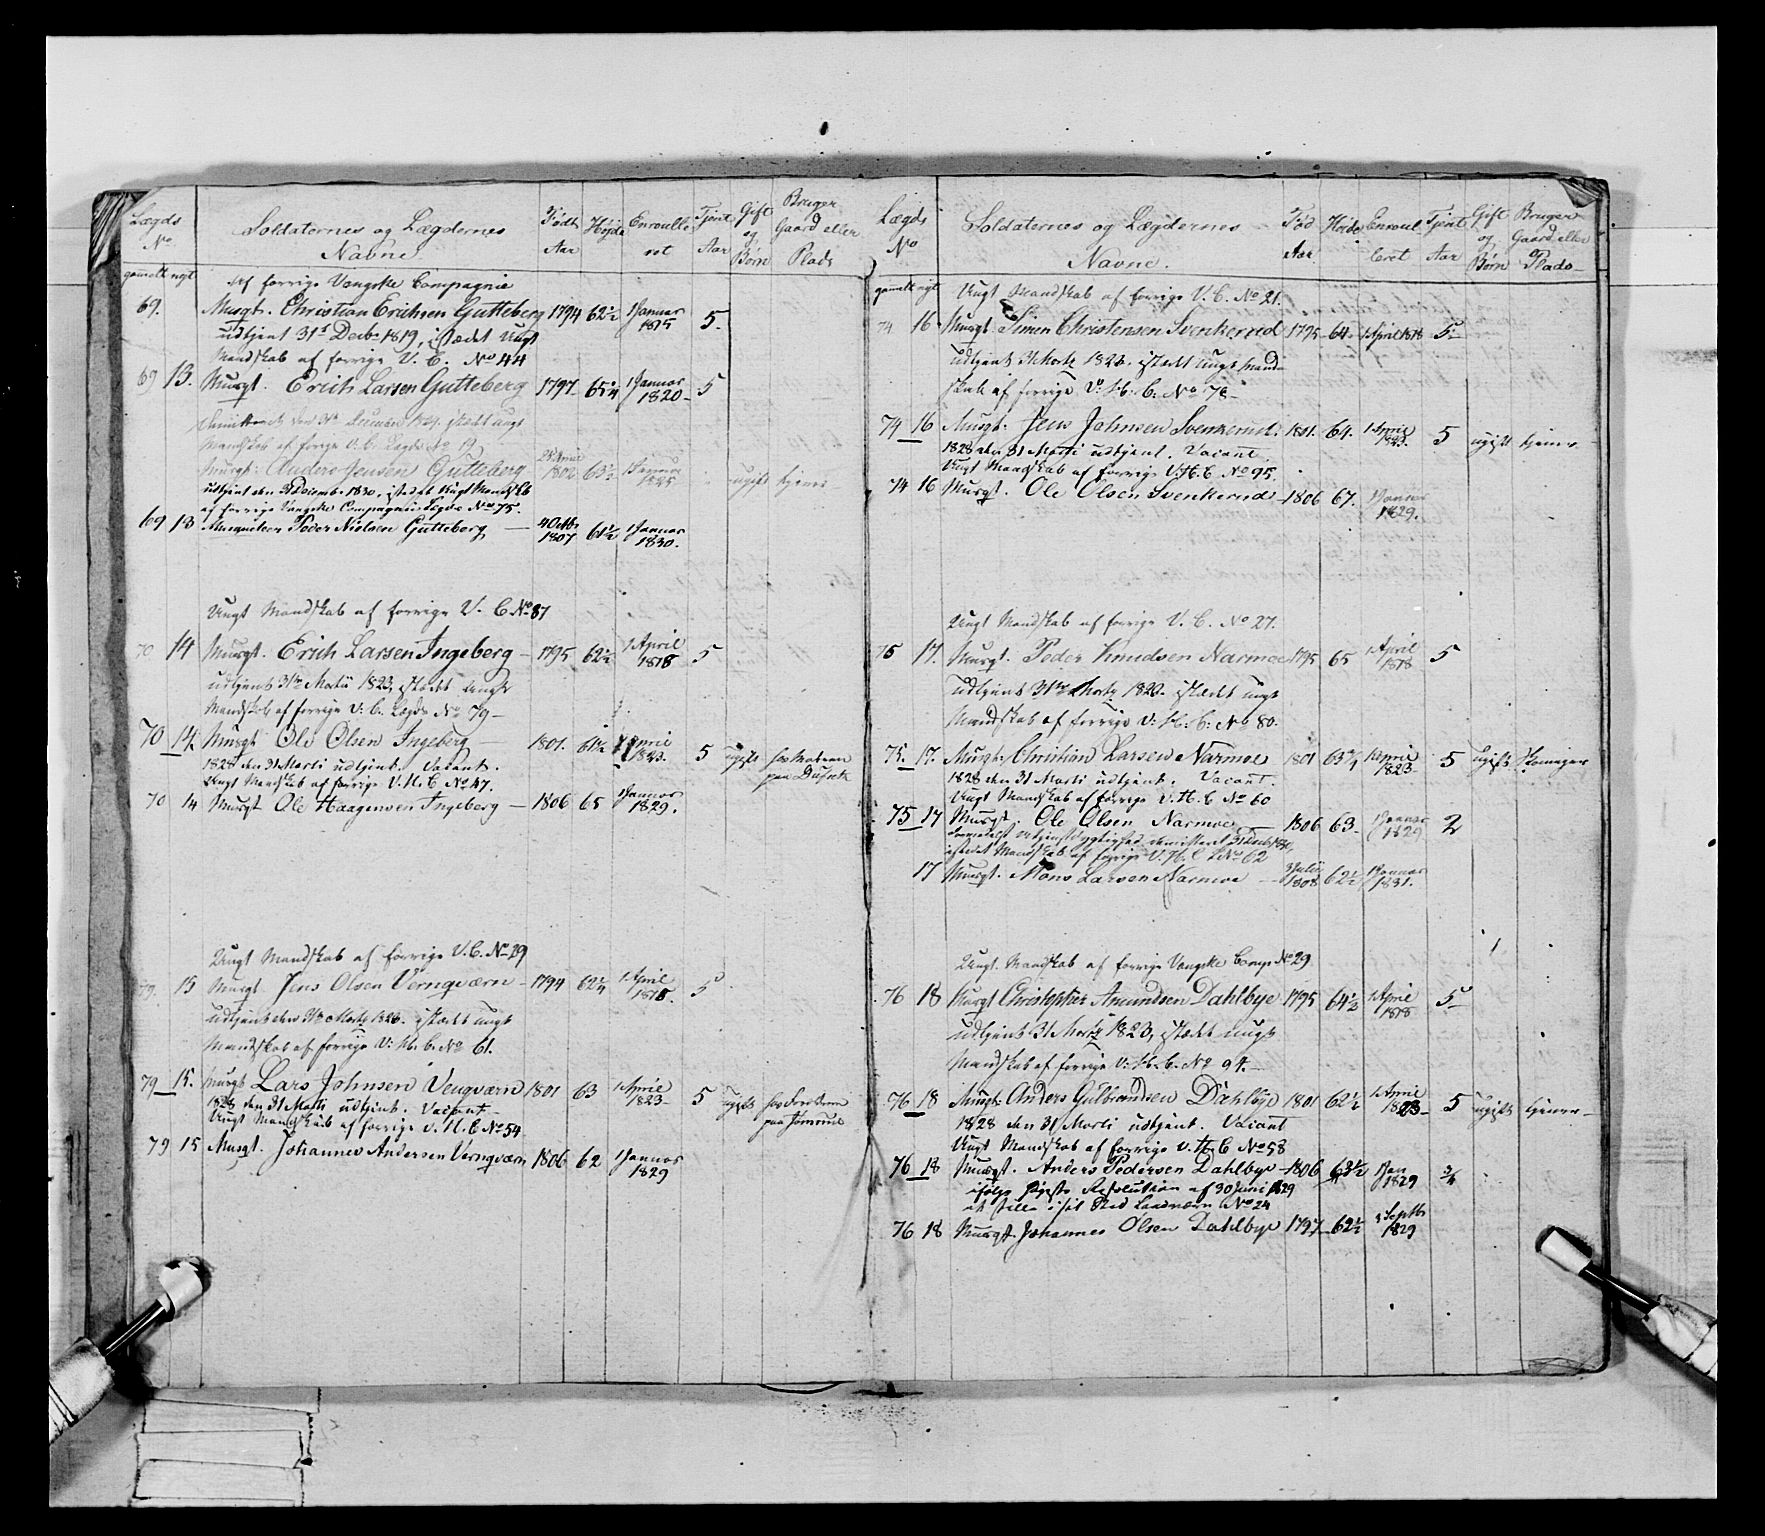 Lægds No
Soldaternes og Lægdernes Navne
Født Aar
Høide
Enroulleret
Tjent Aar
Gift og Børn
Bruger Gaard eller Plads
gamelt nyt
Af forrige Vangske Compagnie
69. Musqt. Christian Erichsen Gutteberg 1794 62½ 1 Januar 1815 5
udtjent 31t Decbr 1819, istædet Ungt
Mandskab af forrige V. C. No 44
69 13. Musqt. Erich Larsen Gutteberg 1797 65¼ 1 Januar 1820 5
Mandskab af forrige V. C. Lægds No 19
Musqt: Anders Jensen Gutteberg 1802 63½ 1 Januar 1825 ugift tjener
udtjent den 31 Decembr 1830, istedet Ungt Mandskab
af forrige Vangske Compagnie Lægds No 75.
69 13 Musqueteer Peder Nielsen Gutteberg 4 Octbr 1807 61½ 1 Januar 1830.
Ungt Mandskab af forrige V. C. No 87
70 14 Musqt. Erich Larsen Ingeberg 1795 62½ 1 April 1818 5
udtjent 31te Martii 1823, istedet Ungt
Mandskab af forrige V: C. Lægds No 79
70 14. Musqt Ole Olsen Ingeberg 1801. 61½ 1 April 1823. 5 ugift
1828 den 31 Marti udtjent. Vacant.
Ungt Mandskab af forrige V. H. C No 47.
70 14 Musqt Ole Haagensen Ingeberg 1806 65 1 Januar 1829.
Ungt Mandskab af forrige V. C. No 29
79. 15 Musqt. Jens Olsen Vernqværn 1794 62¼ 1 April 1818. 5
udtjent den 31te Marty 1823. istedet ungt
Mandskab af forrige V: H. C. No 61.
79 15. Musqt Lars Johnsen Vengværn 1801 63 1 April 1823 5 ugift
1828 den 31 Marti udtjent. Vacant
Ungt Mandskab af forrige V. H. C No 54
79 15 Musqt. Johannes Andersen Vernqværn 1806 62 1 Januar 1829
Lægds No
Soldaternes og Lægdernes Navne.
Fød Aar
Høide
Enroulleret
Tjent Aar
Gift og Børn
Bruger Gaard eller Plads
gamelt nyt
Ungt Mandskab af forrige V. C. No 21.
74 16 Musqt. Simen Christensen Svenkerud 1795 64. 1 April 1818 5
udtjent 31 Marty 1823. istedet ungt Mand
skab af forrige V: H: C: No 78
74 16 Musqt: Jens Johnsen Svenkerud. 1801. 64. 1 April 1823. 5 ugift tjener
1828 den 31 Marti udtjent. Vacant
Ungt Mandskab af forrige V. H. C No 95.
74 16 Musqt. Ole Olsen Svenkerud 1806 67. 1 Januar 1829.
Ungt Mandskab af forrige V. C. No 27.
75 17. Musqt. Peder Knudsen Narmoe 1795 65 1 April 1818 5
udtjent 31te Marty 1823. istedet ungt
Mandskab af forrige V: H: C: No 80.
75. 17. Musqt. Christian Larsen Narmoe 1801 63¾ 1 April 1823 5 ugift
1828 den 31 Marti udtjent. Vacant
Ungt Mandskab af forrige V. H. C No 60
75 17 Musqt. Ole Olsen Narmoe 1806 63 1 Januar 1829 2
istedet Mandskab af forrige V. H. C No 62
17 Musqt. Mons Larsen Narmoe 3 Julii 1808 62½ 1 Januar 1831.
Ungt Mandskab af forrige Vangske Comp No 29
76 18 Musqt Christopher Amundsen Dahlbye 1795 64½ 1 April 1818 5
udtjent 31 Marty 1823, istedet ungt
Mandskab af forrige V: H. C. No 94.
76 18 Musqt: Anders Gulbrandsen Dahlbye 1801 62½ 1 April 1823 5 ugift tjener
1828 den 31 Marti udtjent. Vacant
Ungt Mandskab af forrige V. H. C No 58
76 18 Musqt. Anders Pedersen Dahlbye 1806 63½ 1 Jan 1829 ¾
ifølge Resolution af 30 Juni 1829
Landværn No 24
76 18 Musqt. Johannes Olsen Dahlbye 1797 62½ Septbr 1829